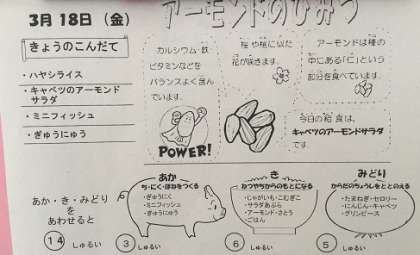 3月18日（金）
アーモンドのひみつ
きょうのこんだて
・ハヤシライス
・キャベツのアーモンド
サラダ
・ミニフィッシュ
・ぎゅうにゅう
カルシウム・鉄
ビタミンなどを
バランスよく含んで
います。
POWER!
桜や桃に似た
花が咲きます。
アーモンドは種の
中にある「仁」という
部分を食べています。
今日の給食は、
キャベツのアーモンドサラダ
です。
あか・き・みどり
を
あわせると
14 しゅるい
あか
ち・にく・ほねをつくる
・ぎゅうにく
・ミニフィッシュ
・ぎゅうにゅう
3 しゅるい
き
ねつやちからのもとになる
・じゃがいも・こむぎこ
・サラダあぶら
・アーモンド・さとう
・ごはん
6 しゅるい
みどり
からだのちょうしをととのえる
・たまねぎ・セロリー
・にんじん・キャベツ
・グリンピース
5 しゅるい